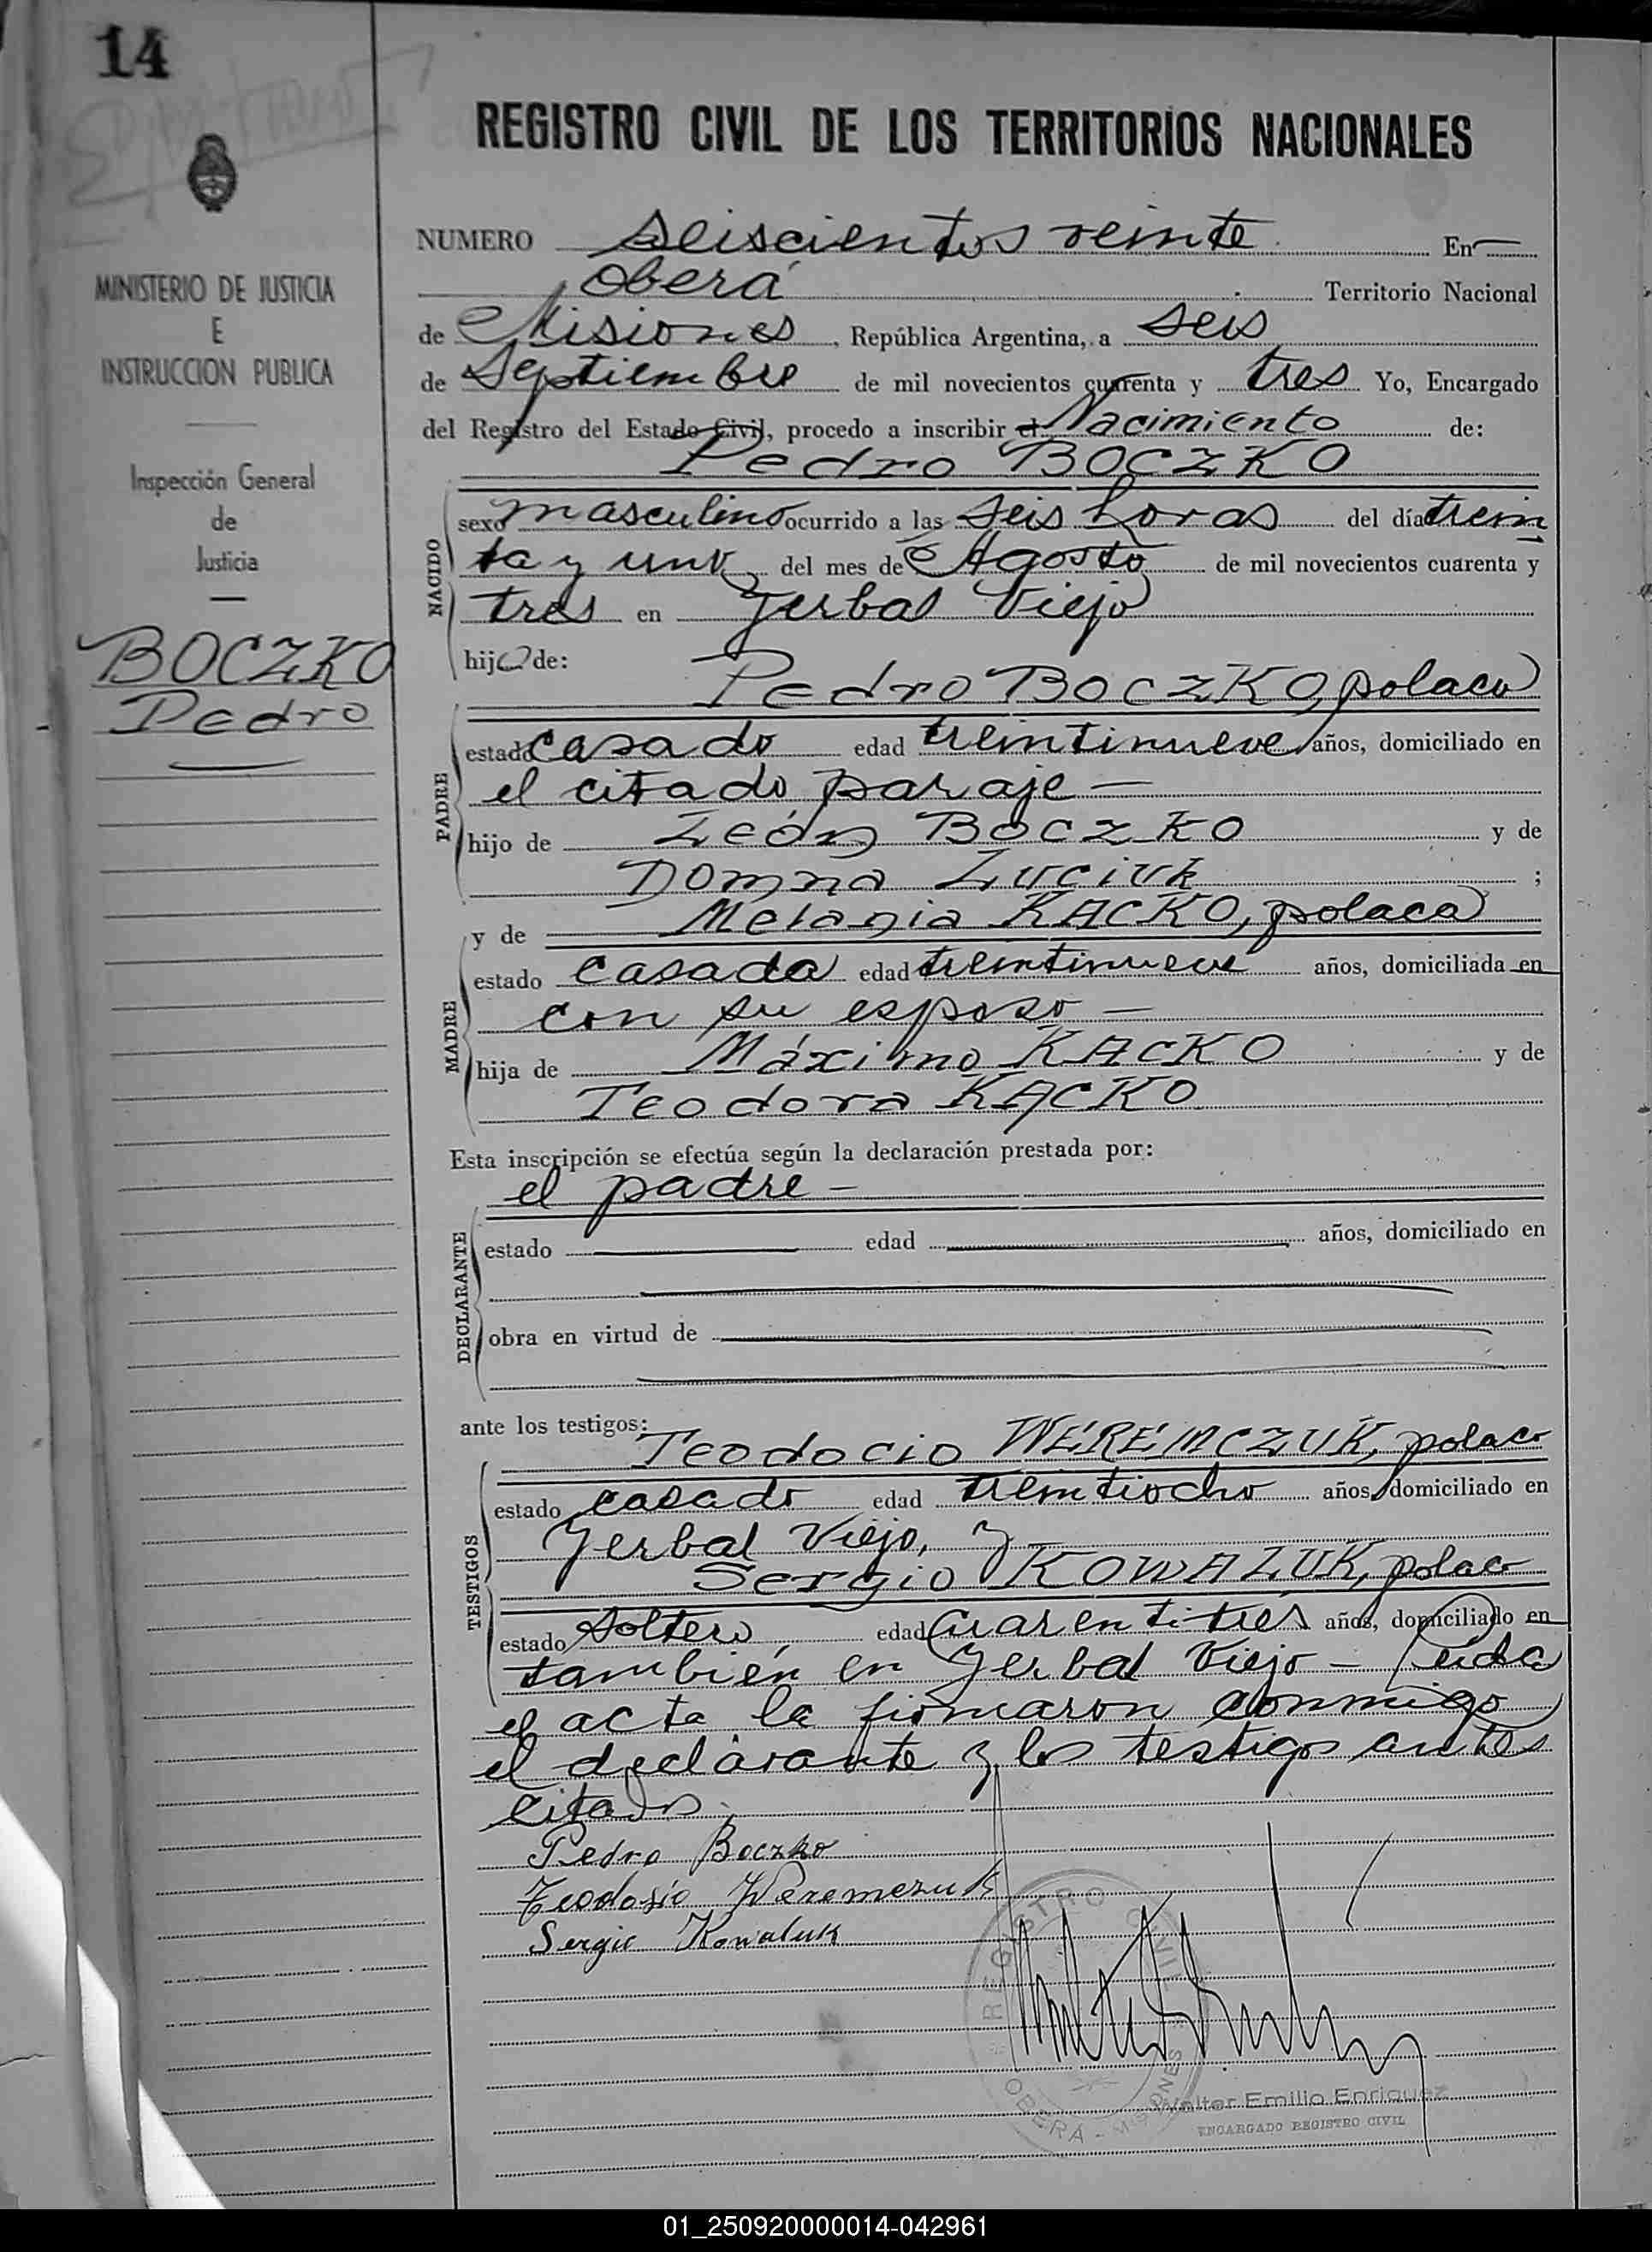 14
REGISTRO CIVIL DE LOS TERRITORIOS NACIONALES
MINISTERIO DE JUSTICIA
E
INSTRUCCION PUBLICA
Inspección General
de
Justicia
BOCZKO
Pedro
NUMERO seiscientos veinte En
Oberá Territorio Nacional
de Misiones, República Argentina, a seis
de Septiembre de mil novecientos cuarenta y tres Yo, Encargado
del Registro del Estado Civil, procedo a inscribir el Nacimiento de:
Pedro BOCZKO
NACIDO
sexo masculino ocurrido a las seis horas del día trein
ta y uno del mes de Agosto de mil novecientos cuarenta y
tres en Yerbal Viejo
hijo de:
Pedro BOCZKO, polaco
PADRE
estado casado edad treintinueve años, domiciliado en
el citado paraje —
hijo de León BOCZKO y de
Domna Luciuk ;
y de Melania KACKO, polaca
MADRE
estado casada edad treintinueve años, domiciliada en
con su esposo —
hija de Máximo KACKO y de
Teodora KACKO
Esta inscripción se efectúa según la declaración prestada por:
el padre —
DECLARANTE
estado edad años, domiciliado en
obra en virtud de
ante los testigos:
Teodocio WEREMCZUK, polaco
TESTIGOS
estado casado edad treintiocho años, domiciliado en
Yerbal Viejo, y
Sergio KOWALUK, polaco
estado soltero edad cuarentitrés años, domiciliado en
también en Yerbal Viejo — Leída
el acta la firmaron conmigo
el declarante y los testigos antes
citados.
Pedro Boczko
Teodosio Weremczuk
Sergio Kowaluk
REGISTRO CIVIL
OBERÁ - MISIONES
Walter Emilio Enriquez
ENCARGADO REGISTRO CIVIL
01_250920000014-042961